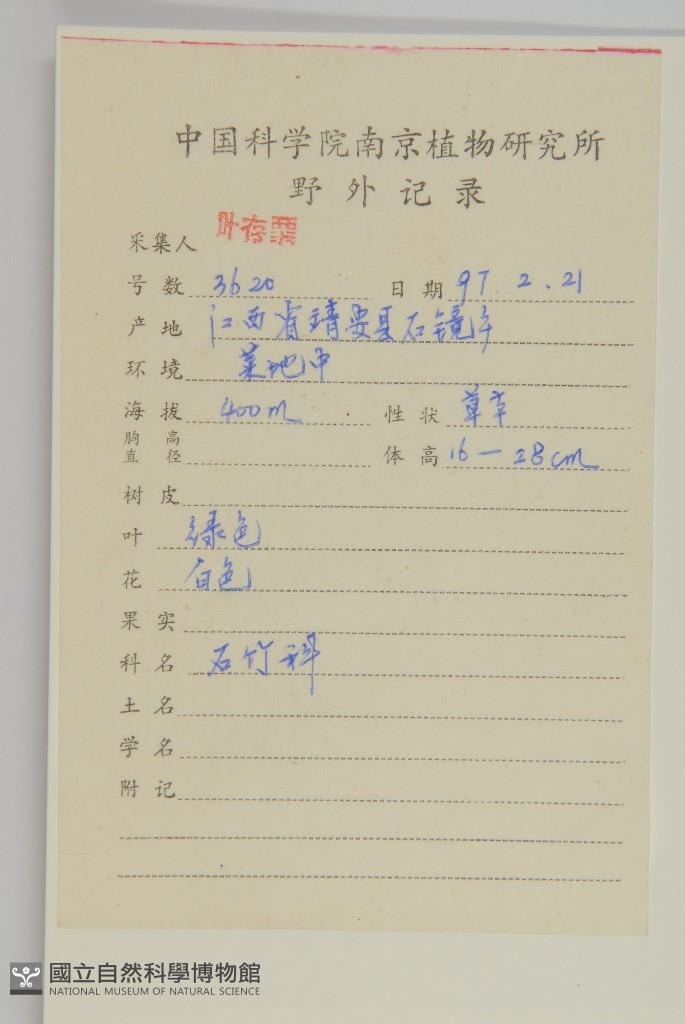 中国科学院南京植物研究所
野外记录
采集人 叶存粟
号数 3620 日期 97.2.21
产地 江西省靖安县石镜
环境 菜地中
海拔 400m 性状 草
胸高直径 体高 16-28cm
树皮
叶 绿色
花 白色
果实
科名 石竹科
土名
学名
附记
國立自然科學博物館
NATIONAL MUSEUM OF NATURAL SCIENCE